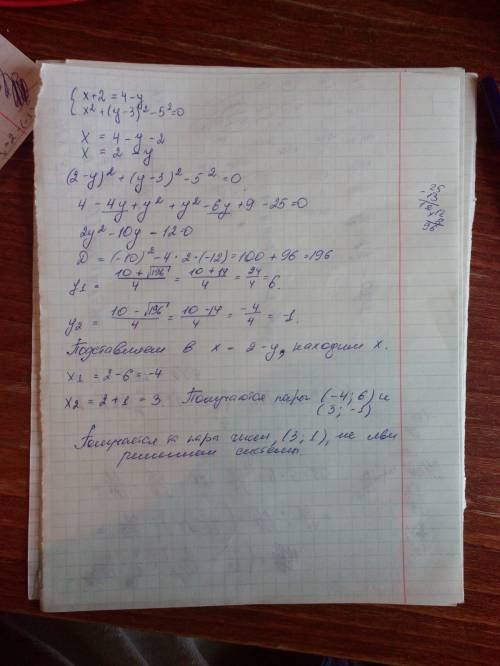 x+2=4-y
x²+(y-3)²-5²=0
x = 4-y-2
x = 2-y
(2-y)²+(y-3)²-5²=0
4-4y+y²+y²-6y+9-25=0
2y²-10y-12=0
D = (-10)²-4·2·(-12)=100+96=196
y1 = (10+√196)/4 = (10+14)/4 = 24/4 = 6.
y2 = (10-√196)/4 = (10-14)/4 = -4/4 = -1.
Подставляем в x = 2-y, находим x.
x1 = 2-6 = -4
x2 = 2+1 = 3. Получаются пары (-4; 6) и
(3; -1)
Получается пары чисел, (3; 1), не
решением системы.